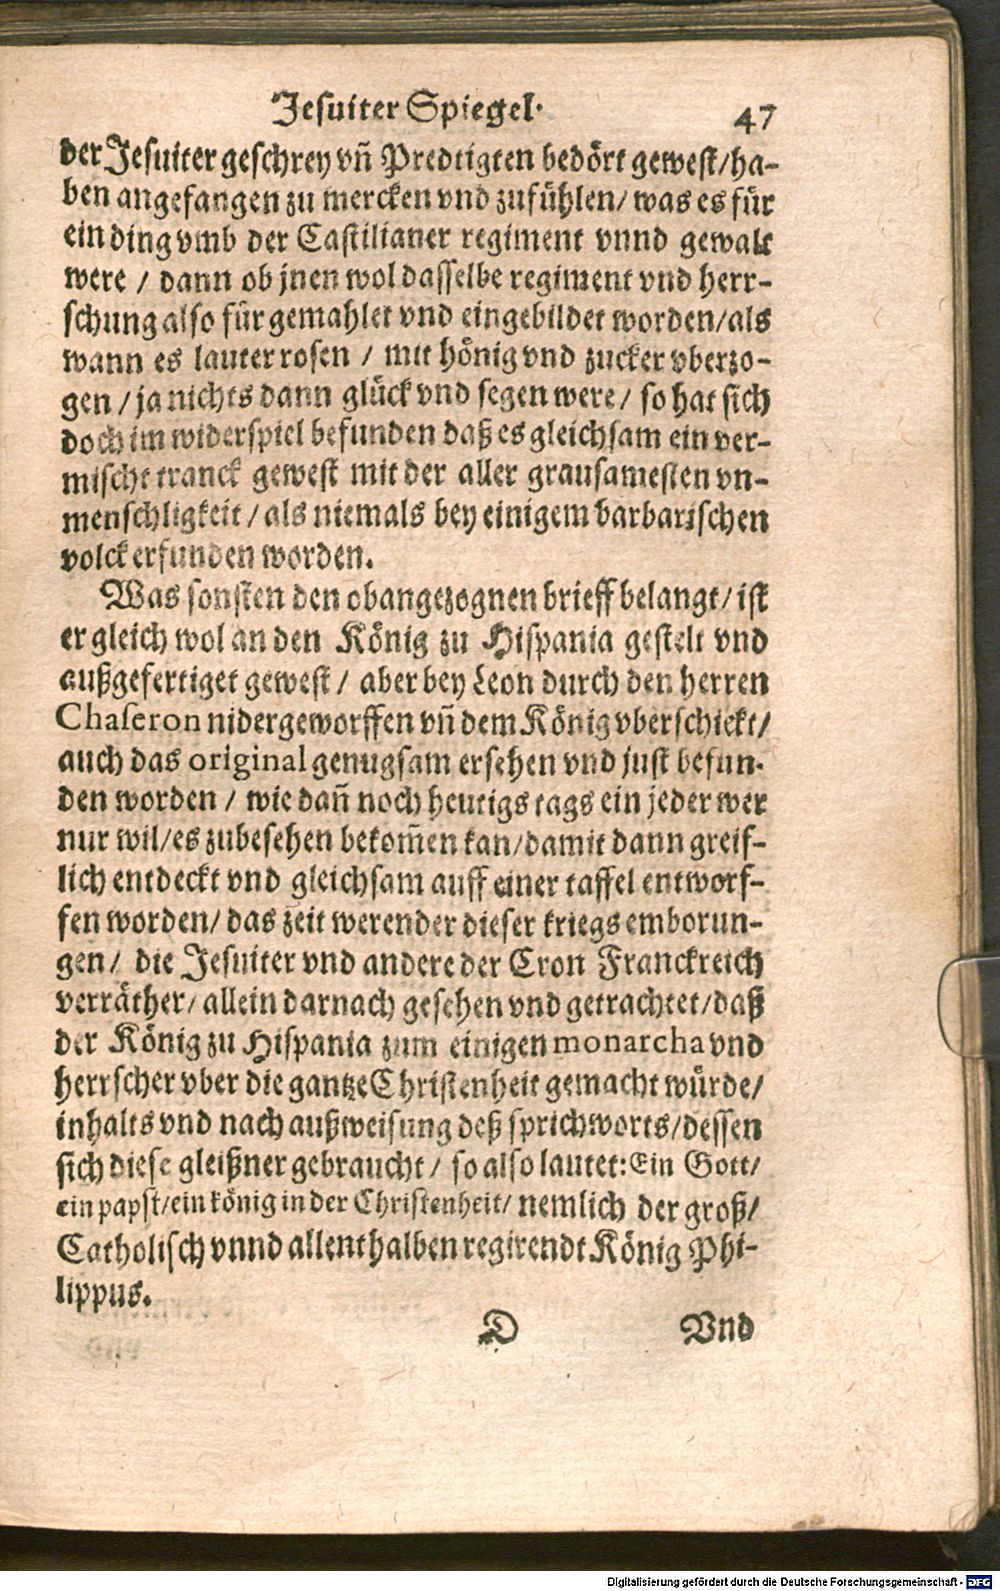 Jesuiter Spiegel. 47
der Jesuiter geschrey vn̄ Predtigten bedört gewest/ha-
ben angefangen zu mercken vnd zufühlen/ was es für
ein ding vmb der Castilianer regiment vnnd gewalt
were / dann ob jnen wol dasselbe regiment vnd herr-
schung also für gemahlet vnd eingebildet worden/als
wann es lauter rosen / mit hönig vnd zucker vberzo-
gen / ja nichts dann glück vnd segen were/ so hat sich
doch im widerspiel befunden daß es gleichsam ein ver-
mischt tranck gewest mit der aller grausamesten vn-
menschligkeit/als niemals bey einigem barbarischen
volck erfunden worden.
Was sonsten den obangezognen brieff belangt/ist
er gleich wol an den König zu Hispania gestelt vnd
außgefertiget gewest/ aber bey Leon durch den herren
Chaseron nidergeworffen vn̄ dem König vberschickt/
auch das original genugsam ersehen vnd just befun-
den worden / wie dan̄ noch heutigs tags ein jeder wer
nur wil/es zubesehen bekom̄en kan/damit dann greif-
lich entdeckt vnd gleichsam auff einer taffel entworf-
fen worden/ das zeit werender dieser kriegs emborun-
gen/ die Jesuiter vnd andere der Cron Franckreich
verräther/ allein darnach gesehen vnd getrachtet/daß
der König zu Hispania zum einigen monarcha vnd
herrscher vber die gantze Christenheit gemacht würde/
inhalts vnd nach außweisung deß sprichworts/dessen
sich diese gleißner gebraucht/ so also lautet: Ein Gott/
ein papst/ein könig in der Christenheit/ nemlich der groß/
Catholisch vnnd allenthalben regirendt König Phi-
lippus.
D Vnd
Digitalisierung gefördert durch die Deutsche Forschungsgemeinschaft - DFG